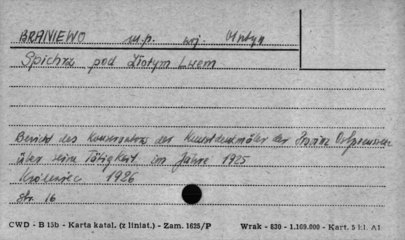 BRANIEWO m.p. woj. Olsztyn
Spichrz pod Złotym Lwem
Bericht des Konservators der Kunstdenkmäler der Provinz Ostpreussen
über seine Tätigkeit im Jahre 1925
Królewiec 1926
str. 16
CWD - B 15b - Karta katal. (z liniat.) - Zam. 1625/P Wrak - 830 - 1.169.800 - Kart. 5 kl. A1